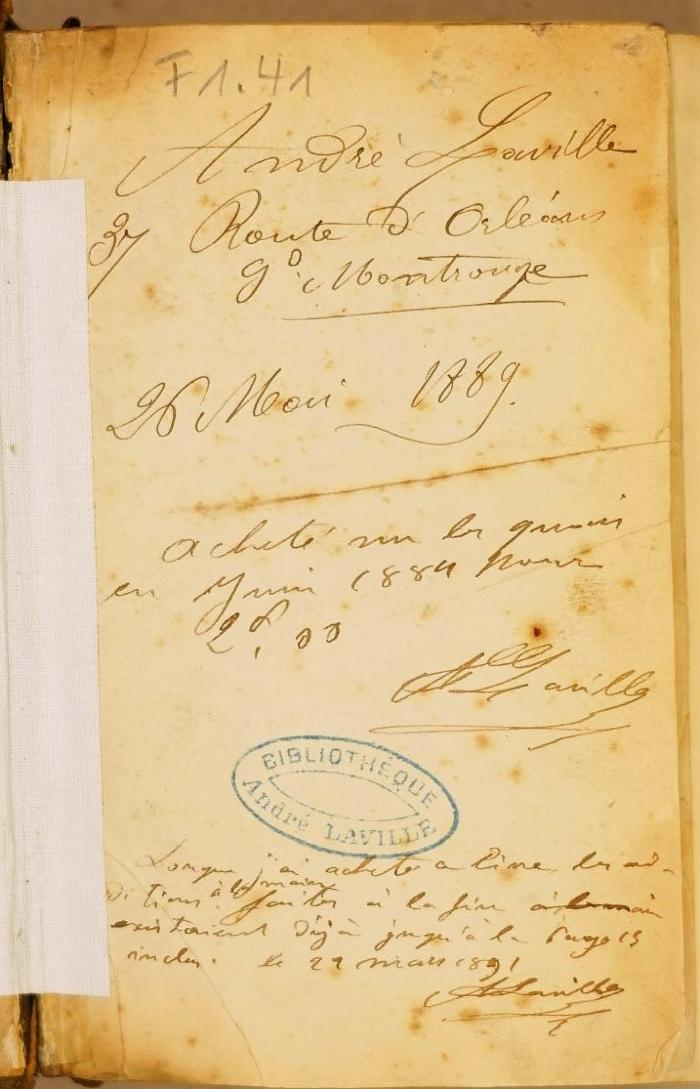 F1.41
André Laville
37 Route d'Orléans
Gd Montrouge
26 Mai 1889.
acheté sur les quais
en Juin 1884 pour
2f,00
A Laville
BIBLIOTHÈQUE
André LAVILLE
Lorsque j'ai acheté ce livre les ad-
ditions à la main faites à la fin à la main
existaient déjà jusqu'à la page 15
inclus. le 29 mars 1891
A Laville